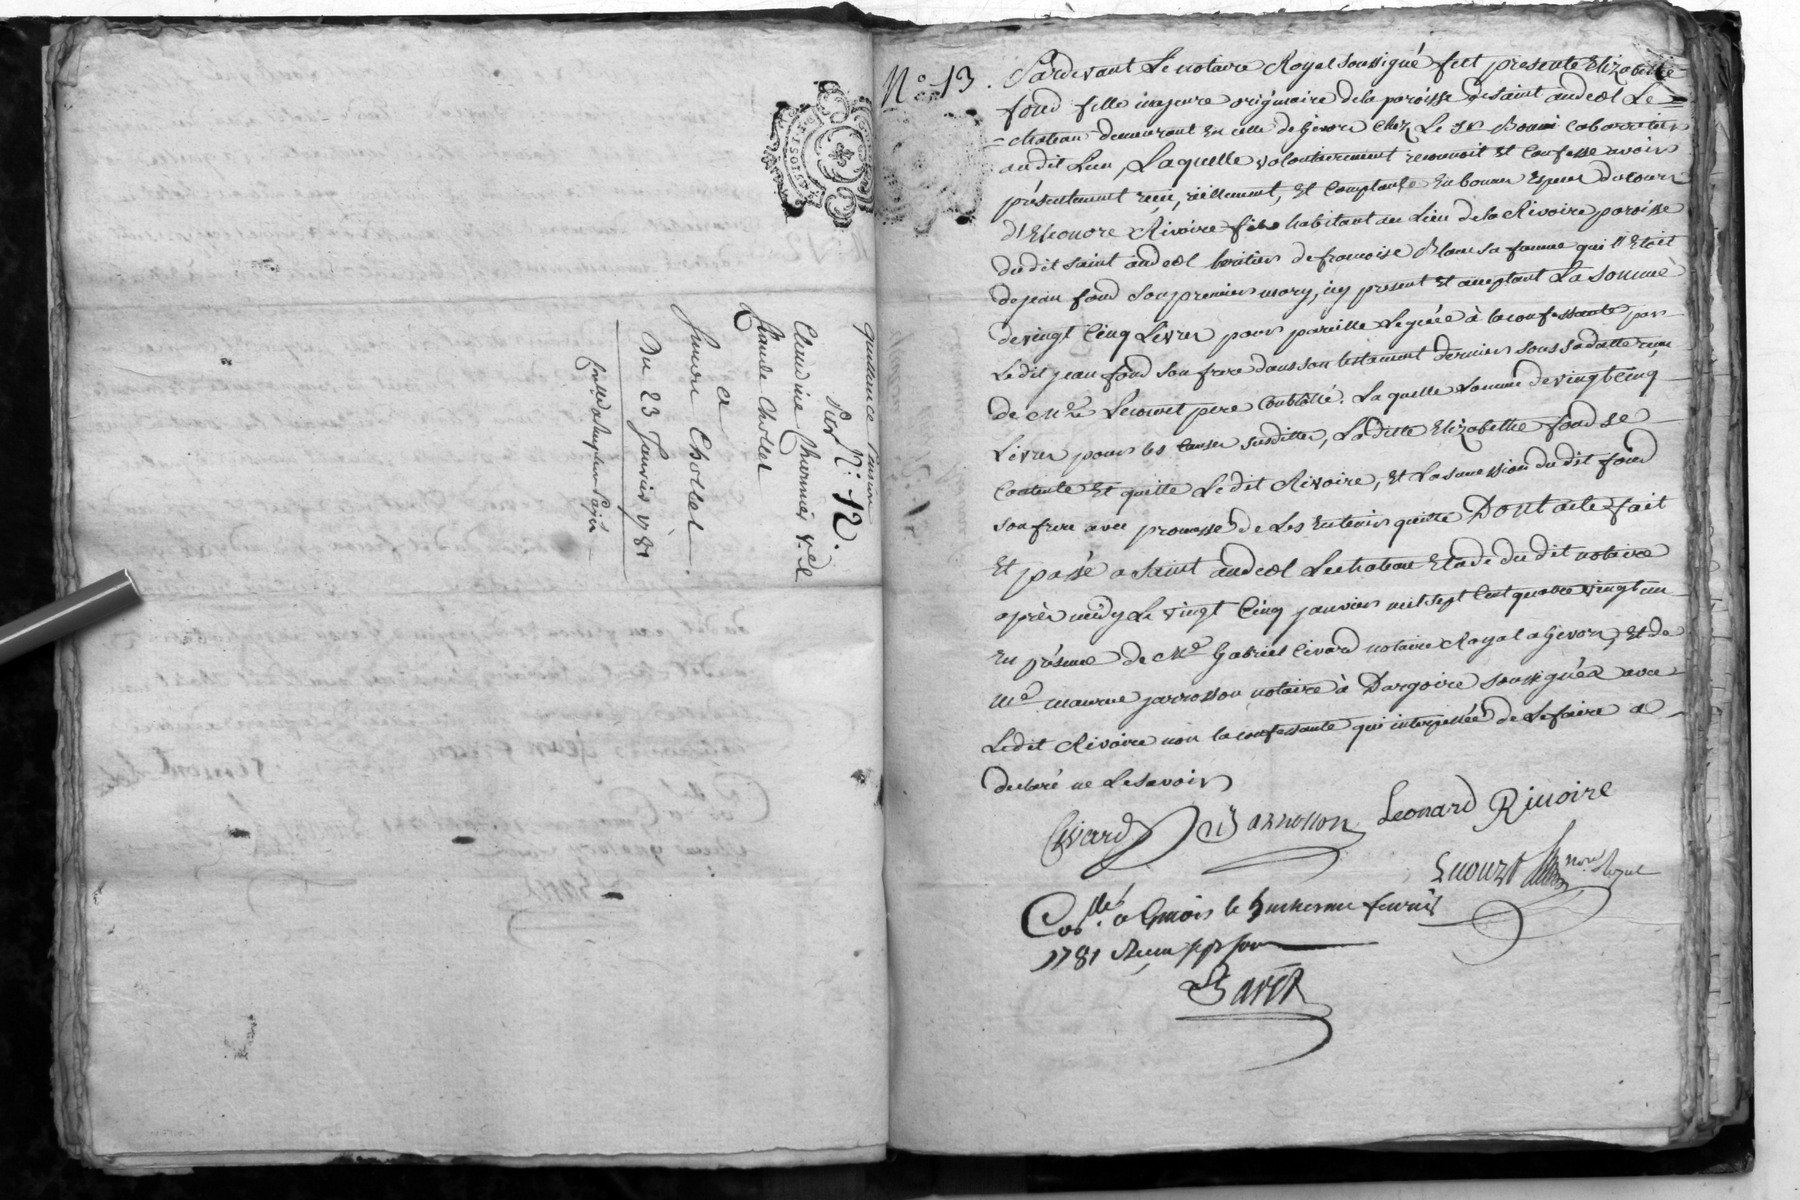 quittance
Par
N: 12.
Claudine Charmier v.e
Claude Chollet
a
Chollet.
Du 23 Janvier 1781
N° 13.
Pardevant Le notaire Royal soussigné fut presente Elizabethe
fond fille majeure originaire de la paroisse de saint andeol Le
chateau demeurant en celle de Givors chez Le Sr Cabaretier
audit Lieu, Laquelle volontairement reconnoit et Confesse avoir
présentement reçu, réellement, et Comptant En bonnes Especes du cours
d'Eleonore Rivoire habitant au Lieu de la Rivoire paroisse
dudit saint andeol heritier de francoise Blanc sa femme qui l'Etait
de jean fond son premier mary, icy present et acceptant La somme
de vingt Cinq Livres pour pareille Leguée à la confessante par
Ledit jean fond son frere dans son testament dernier sous sa datte reçu
de Me Lenouvet pere Controllé. La quelle somme de vingt Cinq
Livres pour les Causes susdittes, La ditte Elizabethe fond se
Contente Et quitte Le dit Rivoire, Et La succession du dit fond
son frere avec promesse de Les En tenir quitte Dont acte fait
Et passé a saint andeol Lechateau Etude du dit notaire
après midy Le vingt Cinq janvier mil sept Cent quatre vingt un
En présence de Me Gabriel Civard notaire Royal a Givors, Et de
Me maurice jarrosson notaire à Dargoire soussignés avec
Ledit Rivoire non la confessante qui interpellée de Le faire a
declaré ne Le savoir
Civard Jarrosson Leonard Riuoire
Collé a Givors le février
1781 Reçu sept sous